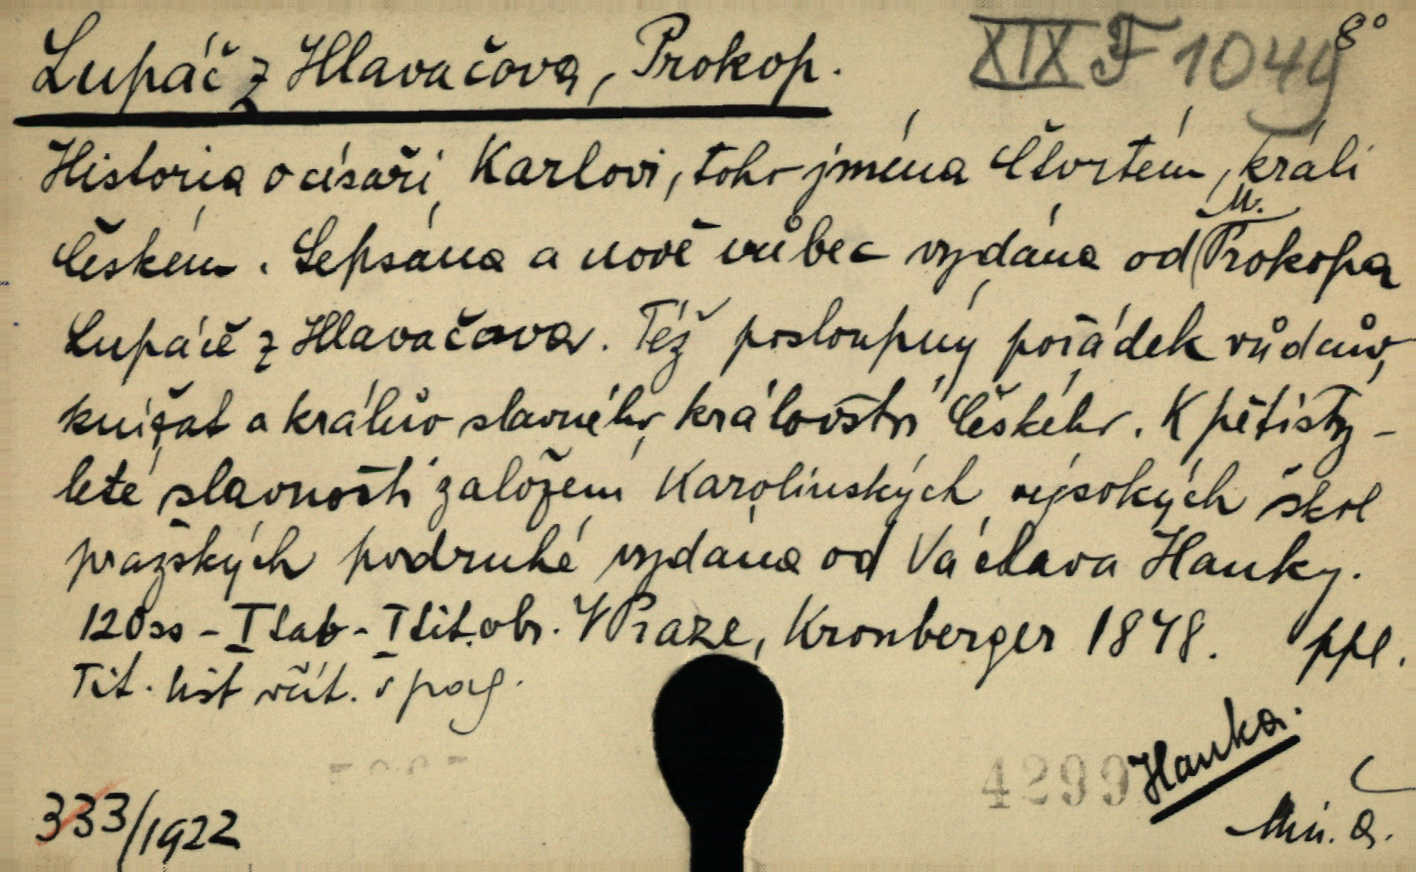 Lupáč z Hlavačova, Prokop.
XIX F 1049
8°
Historia o císaři Karlovi, toho jména Čtvrtém, králi
Českém. Sepsána a nově vůbec vydána od M. Prokopa
Lupáče z Hlavačova. Též posloupný pořádek vůdcův,
knížat a králův slavného království Českého. K pětisty-
leté slavnosti založení Karolinských vysokých škol
pražských podruhé vydána od Václava Hanky.
120 ss - I tab - I tit. obr. V Praze, Kronberger 1848. ppl.
Tit. list včít. v pag.
4299
Hanka.
333/1922